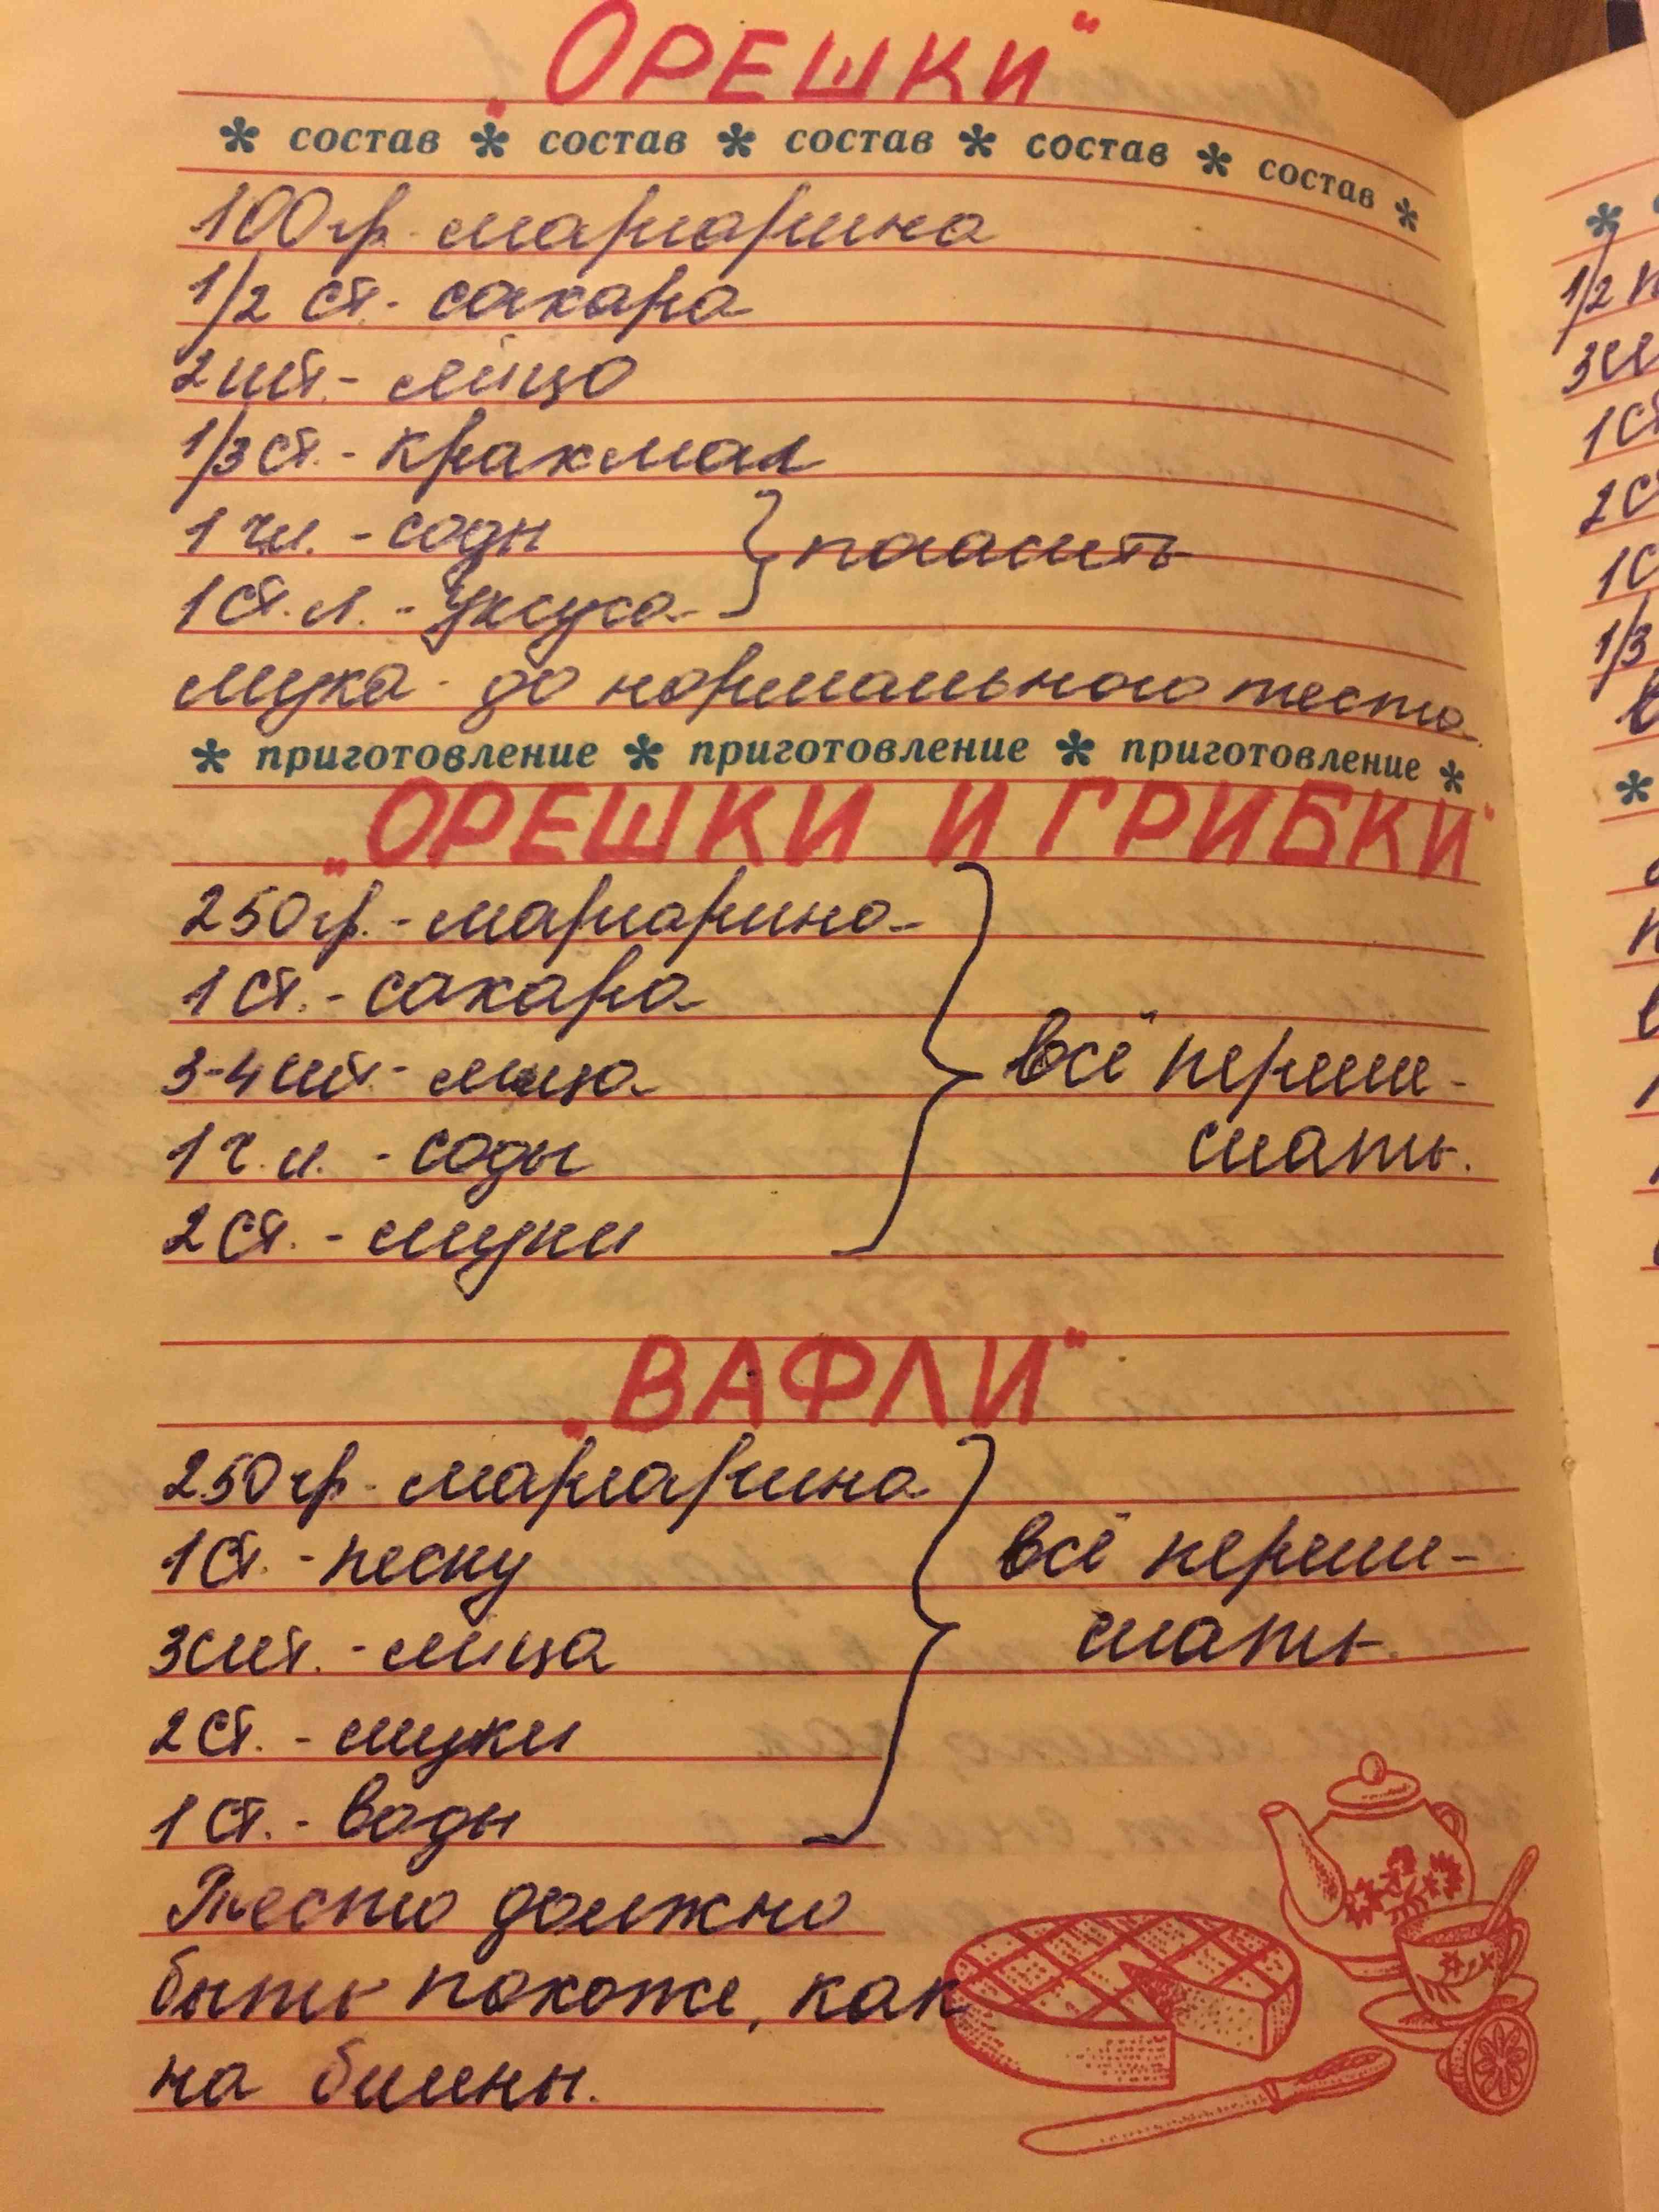 „ОРЕШКИ"
* состав * состав * состав * состав * состав *
100гр. маргарина
1/2 ст. - сахара
2 шт. - яйцо
1/3 ст. - крахмал
1 ч.л. - соды } погасить
1 ст.л. - уксуса
мука - до нормального теста.
* приготовление * приготовление * приготовление *
„ОРЕШКИ И ГРИБКИ"
250гр. - маргарина
1 ст. - сахара
3-4 шт. - яйца
всё переме-
1 ч.л. - соды
шать.
2 ст. - муки
„ВАФЛИ"
250гр. маргарина
1 ст. - песку
всё переме-
3 шт. - яйца
шать.
2 ст. - муки
1 ст. - воды
Тесто должно
быть похоже, как
на блины.
1/2
3
1 ст
2 с
1 с
1/3